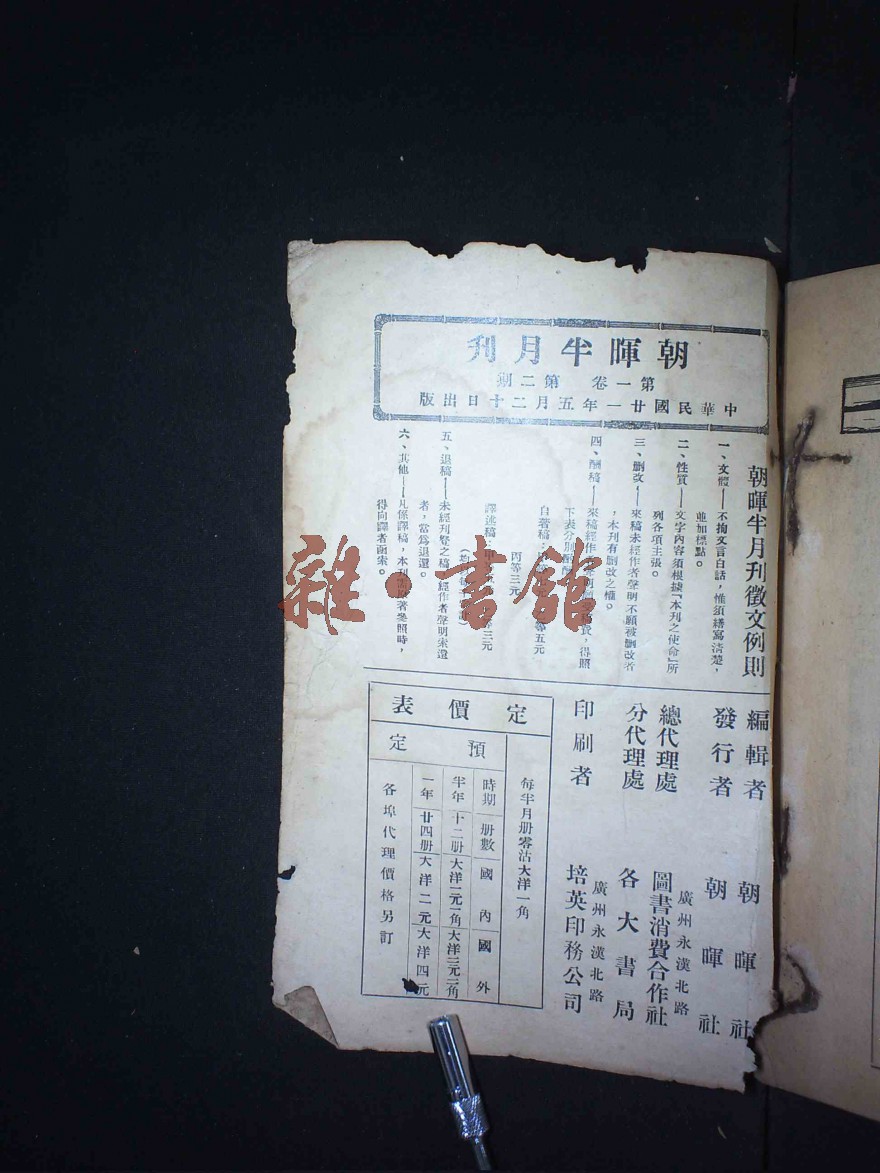 朝暉半月刊
第一卷 第二期
中華民國廿一年五月二十日出版
朝暉半月刊徵文例則
一、文體——不拘文言白話，惟須繕寫清楚，
並加標點。
二、性質——文字內容須根據「本刊之使命」所
列各項主張。
三、刪改——來稿未經作者聲明不願被刪改者
，本刊有刪改之權。
四、酬稿——來稿經作者
費，得照
下表分別
自著稿
等五元
丙等三元
譯述稿
等三元
五、退稿——未經刊登之稿經作者聲明未還
者，當為退還。
六、其他——凡係譯稿，本刊
著參照時，
得向譯者函索。
編輯者 朝暉社
發行者 朝暉社
總代理處 廣州永漢北路
圖書消費合作社
分代理處 各大書局
印刷者 廣州永漢北路
培英印務公司
定價表
每半月册零沽大洋一角
預定
時期 册數 國內 國外
半年 十二册 大洋一元一角 大洋二元二角
一年 廿四册 大洋二元 大洋四元
各埠代理價格另訂
雜·書館